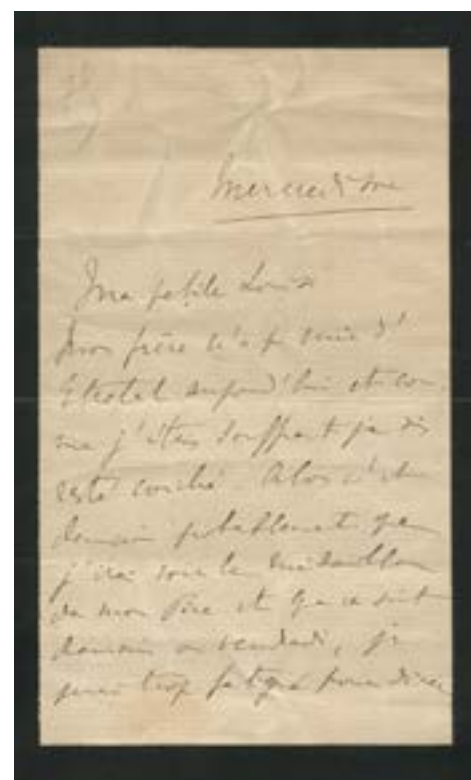 Mercredi soir
Ma petite Louise
Mon frère n'a pu venir d'
Etretat aujourd'hui et com
me j'étais souffrant je suis
resté couché. Alors c'est
demain probablement que
j'irai pour le médaillon
de mon Père et que ce soit
demain ou vendredi, je
serai trop fatigué pour dîner